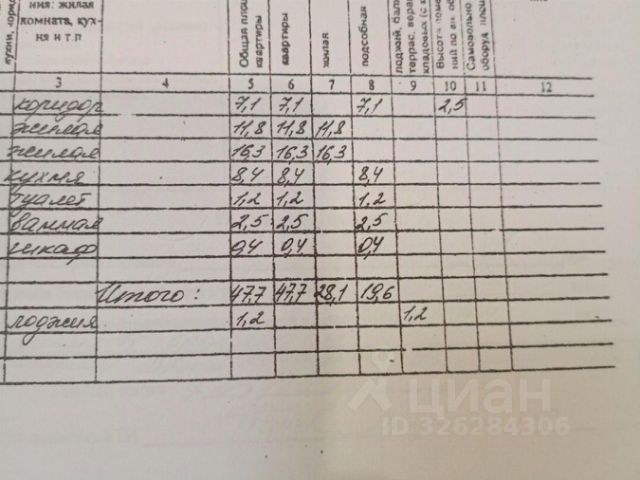 ния: жилая
комната, кух-
ня и т.п
Общая площ
квартиры
квартиры
жилая
подсобная
3 4 5 6 7 8 9 10 11 12
коридор 7,1 7,1 7,1 2,5
жилая 11,8 11,8 11,8
жилая 16,3 16,3 16,3
кухня 8,4 8,4 8,4
туалет 1,2 1,2 1,2
ванная 2,5 2,5 2,5
шкаф 0,4 0,4 0,4
Итого: 47,7 47,7 28,1 19,6
лоджия 1,2 1,2
циан
ID 326284306